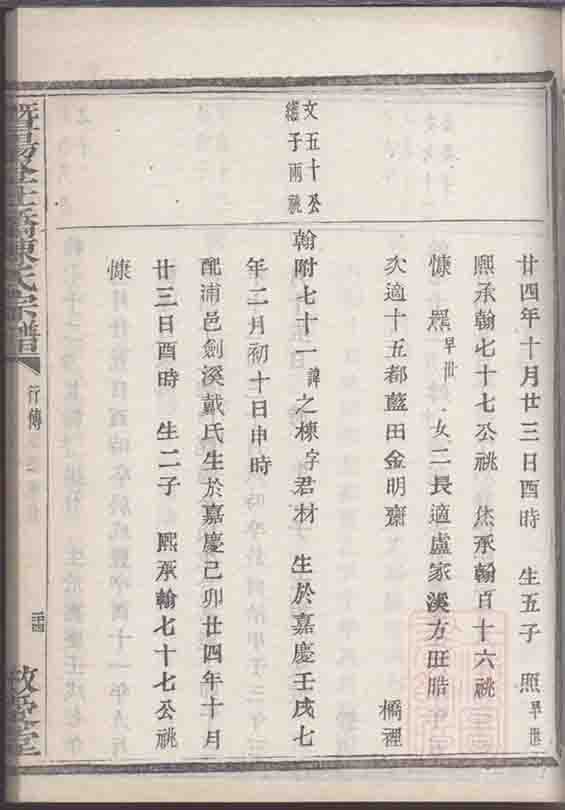 廿四年十月廿三日酉時 生五子 照早世
熙承翰七十七公祧 烋承翰百十六祧
慷 羆早世 女二長適盧家溪方田晧
次適十五都藍田金明齋 橋裡
文五十公
繼子兩祧
翰附七十一諱之棟字君材 生於嘉慶壬戌七
年二月初十日申時
配浦邑劍溪戴氏生於嘉慶己卯廿四年十月
廿三日酉時 生二子 熙承翰七十七公祧
慷
陳氏宗譜
行傳
敬愛堂